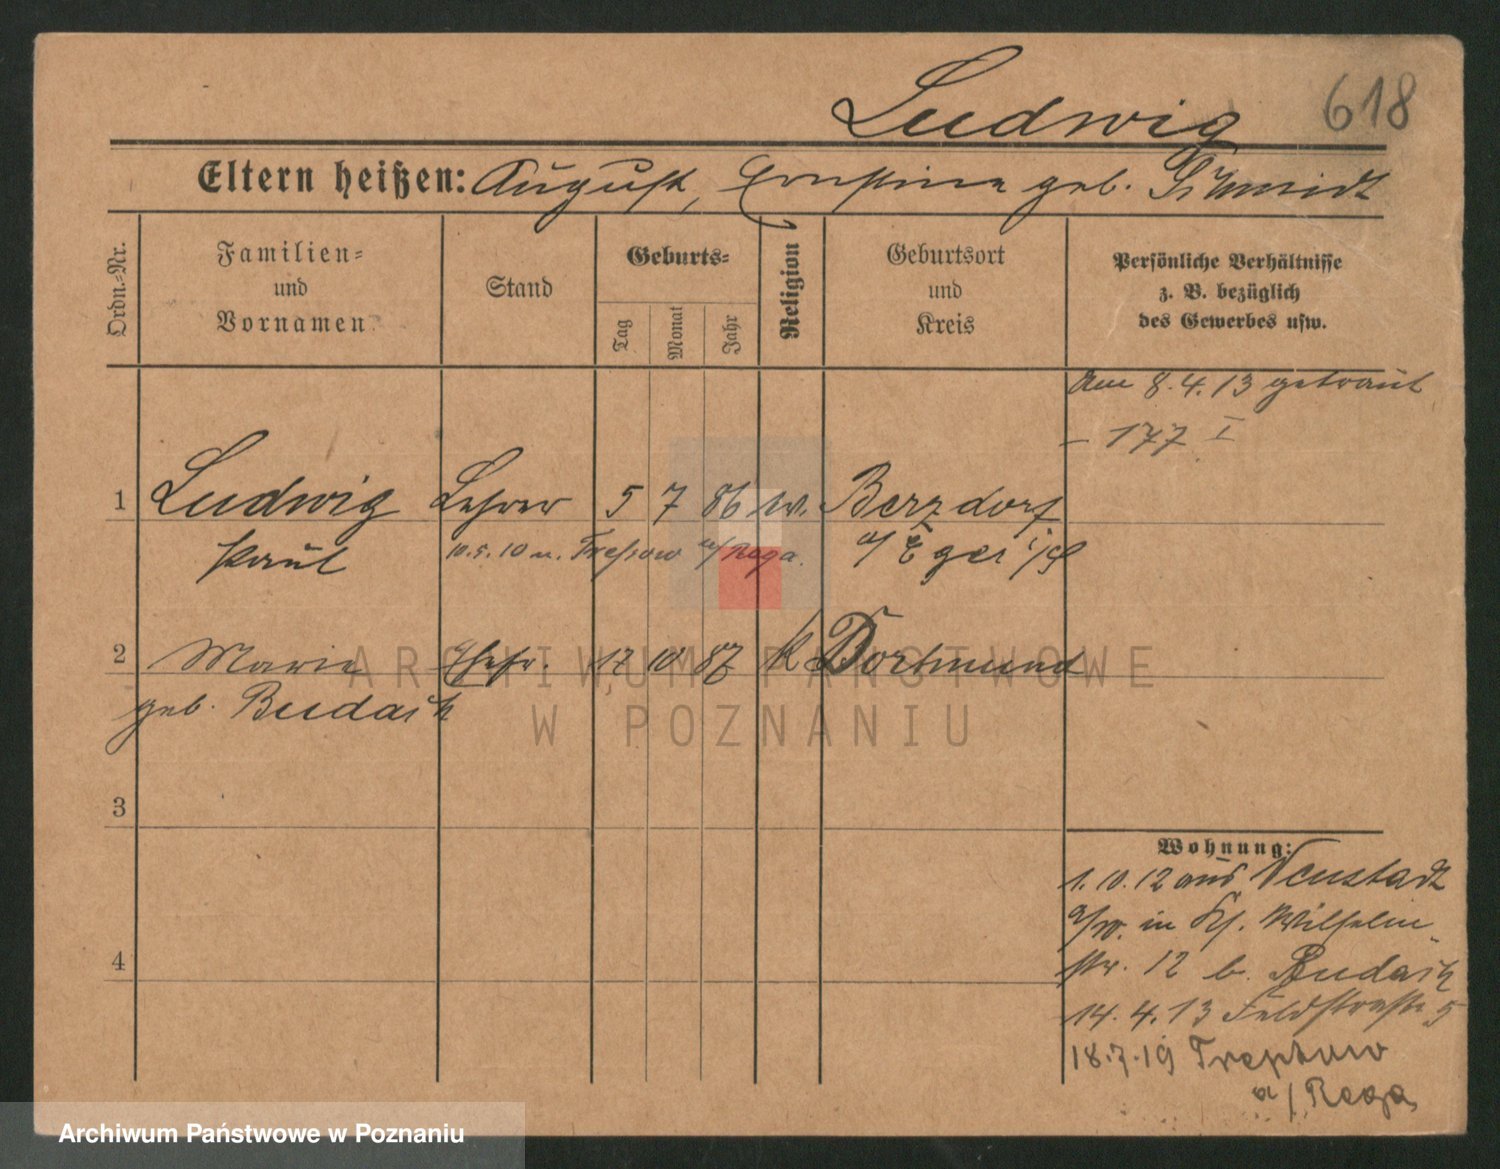 Ludwig 618
Eltern heißen: August, Ernstine geb. Schmidt
Ordn.-Nr. Familien- und Vornamen Stand Geburts- Tag Monat Jahr Religion Geburtsort und Kreis Persönliche Verhältnisse z. B. bezüglich des Gewerbes usw.
Am 8.4.13 getraut
– 177 I
1 Ludwig Lehrer 5 7 86 ev. Berzdorf
Paul 10.5.10 n. Treptow a/Rega. a/Eger
2 Marie Ehefr. 17 10 87 k. Dortmund
geb. Budach
3
4
Wohnung:
1.10.12 aus Neustadt
in Wilhelm-
str. 12 b. Budach
14.4.13 Feldstraße 5
18.7.19 Treptow
a/Rega
ARCHIWUM PAŃSTWOWE
W POZNANIU
Archiwum Państwowe w Poznaniu